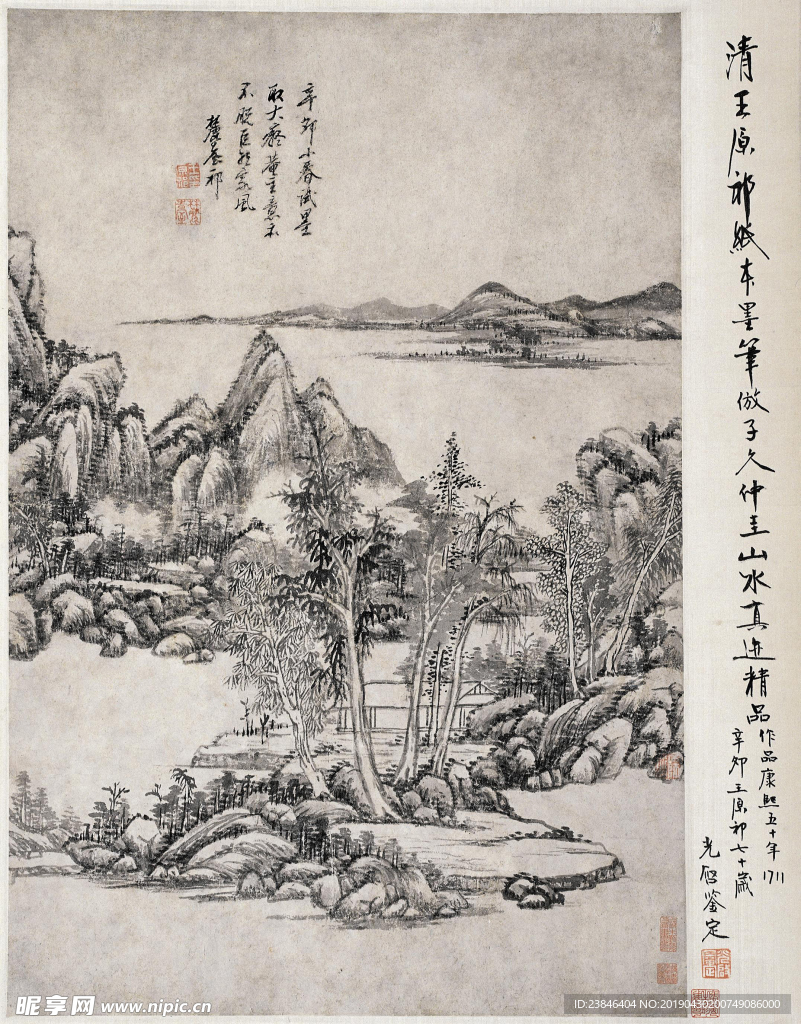 清王原祁紙本墨筆倣子久仲圭山水真迹精品
作品康熙五十年1711
辛卯王原祁七十歲
光启鉴定
辛卯小春試墨
取大癡菴主意亦
不脱巨然家風
麓臺祁
昵享网 www.nipic.cn
ID:23846404 NO:20190430200749086000